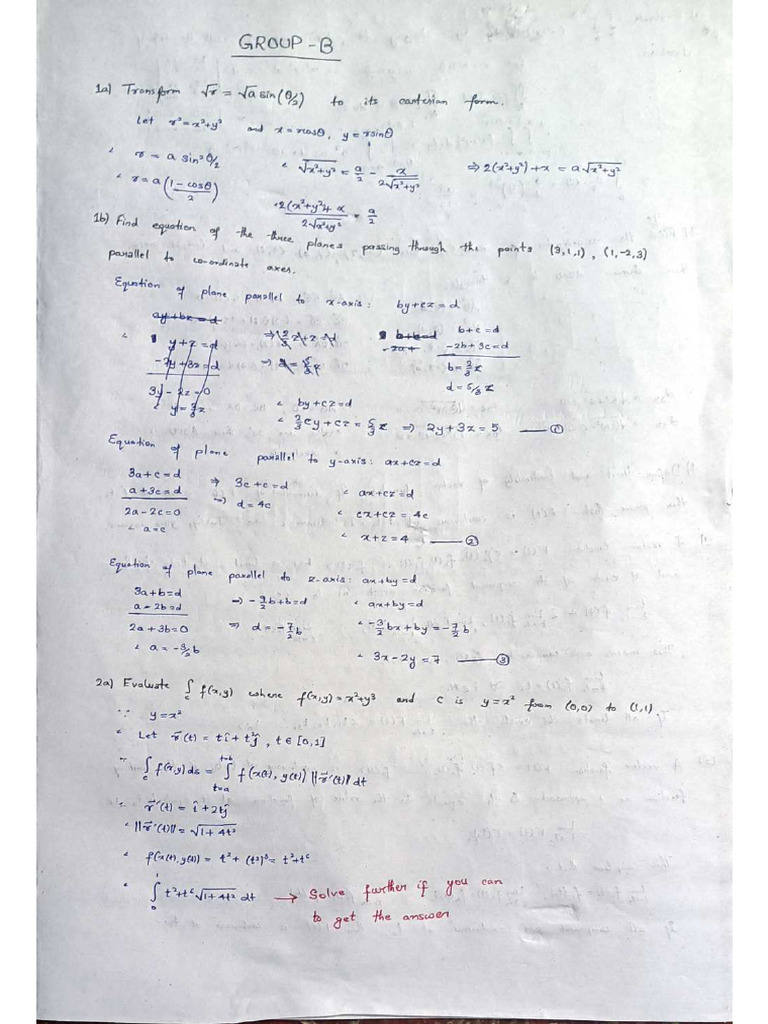 GROUP-B
1a) Transform √r = √a sin(θ/2) to its cartesian form.
Let r² = x²+y² and x = rcosθ, y = rsinθ
∴ r = a sin² θ/2 ∴ √x²+y² = a/2 - x/2√x²+y² ⇒ 2(x²+y²)+x = a√x²+y²
∴ r = a(1-cosθ/2)
2(x²+y²)+x/2√x²+y² = a/2
1b) Find equation of the three planes passing through the points (3,1,1), (1,-2,3)
parallel to co-ordinate axes.
Equation of plane parallel to x-axis: by+cz = d
ay+bz = d
y+z = d b+c = d
-2y+3z = d -2b+3c = d
3y-2z = 0 b = 2/3 c
∴ y = 2/3 z d = 5/3 c
∴ by+cz = d
∴ 2/3 cy+cz = 5/3 c ⇒ 2y+3z = 5 —— ①
Equation of plane parallel to y-axis: ax+cz = d
3a+c = d ⇒ 3c+c = d ∴ ax+cz = d
a+3c = d ⇒ d = 4c ∴ cx+cz = 4c
2a-2c = 0 ∴ x+z = 4 —— ②
∴ a = c
Equation of plane parallel to z-axis: ax+by = d
3a+b = d ⇒ -9/2 b+b = d ∴ ax+by = d
a-2b = d ⇒ d = -7/2 b ∴ -3/2 bx+by = -7/2 b
2a+3b = 0 ∴ 3x-2y = 7 —— ③
∴ a = -3/2 b
2a) Evaluate ∫c f(x,y) where f(x,y) = x²+y³ and c is y = x² from (0,0) to (1,1).
∵ y = x²
∴ Let r⃗(t) = tî + t²ĵ, t ∈ [0,1]
∵ ∫c f(x,y) ds = ∫t=a t=b f(x(t), y(t)) ||r⃗'(t)|| dt
∵ r⃗'(t) = î + 2tĵ
∴ ||r⃗'(t)|| = √1+4t²
∴ f(x(t), y(t)) = t² + (t²)³ = t²+t⁶
∴ ∫0 1 t²+t⁶ √1+4t² dt → Solve further if you can
to get the answer